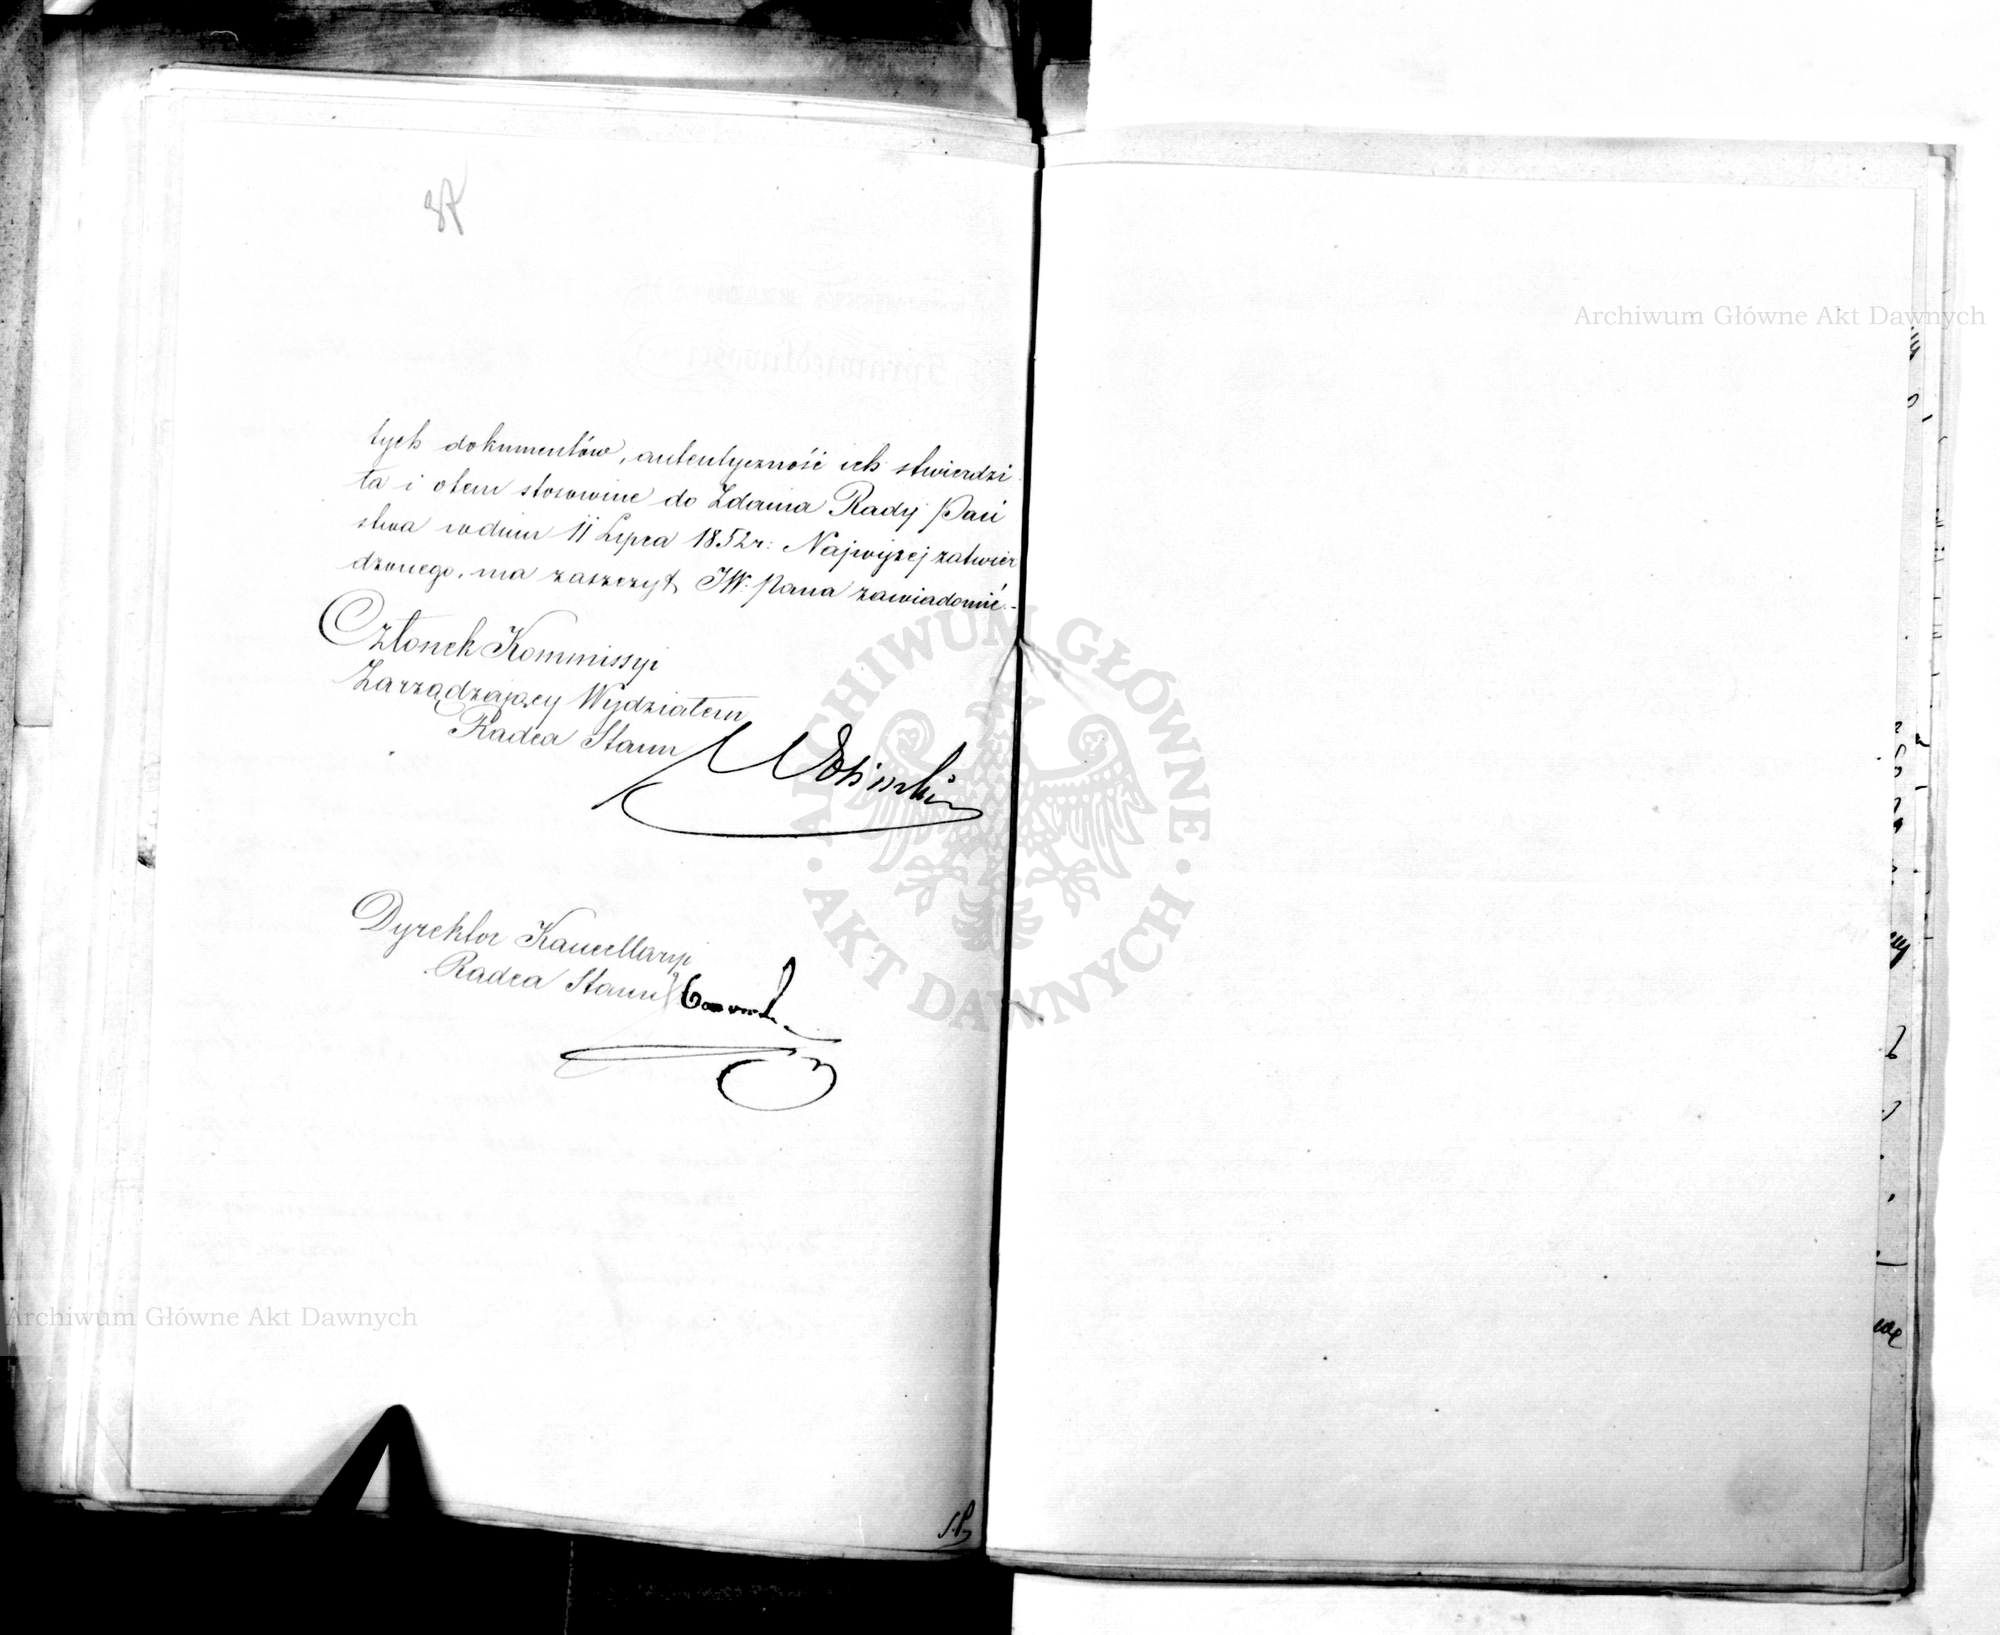 tych dokumentów, autentyczność ich stwierdzi
ła i otem stosownie do Zdania Rady Pań
stwa wdniu 11 Lipca 1852 r: Najwyżej zatwier
dzonego, ma zaszczyt JW. Pana zawiadomić.-
Członek Kommissyi
Zarządzający Wydziałem
Radca Stanu
Dyrektor Kancellaryi
Radca Stanu
Archiwum Główne Akt Dawnych
ARCHIWUM GŁÓWNE
AKT DAWNYCH
Archiwum Główne Akt Dawnych